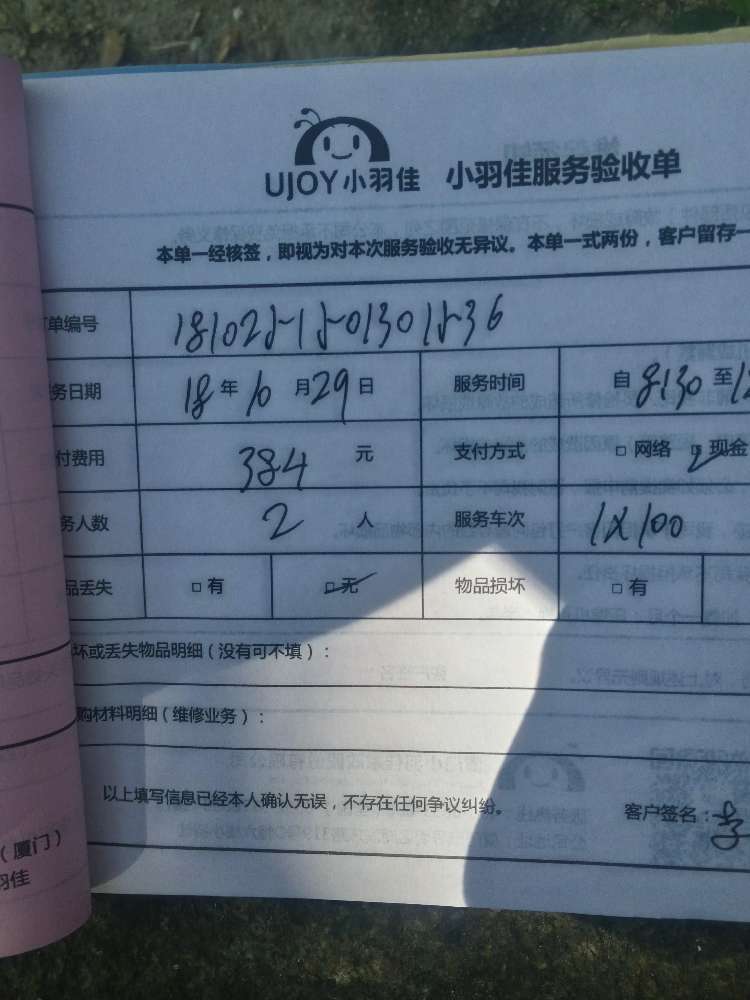 UJOY小羽佳 小羽佳服务验收单
本单一经核签，即视为对本次服务验收无异议。本单一式两份，客户留存一
单编号 181025-15-01301536
务日期 18年10月29日 服务时间 自8:30至1
付费用 384元 支付方式 □网络 ☑现金
务人数 2人 服务车次 1X100
品丢失 □有 ☑无 物品损坏 □有
坏或丢失物品明细（没有可不填）：
购材料明细（维修业务）：
以上填写信息已经本人确认无误，不存在任何争议纠纷。 客户签名：李
（厦门）
羽佳